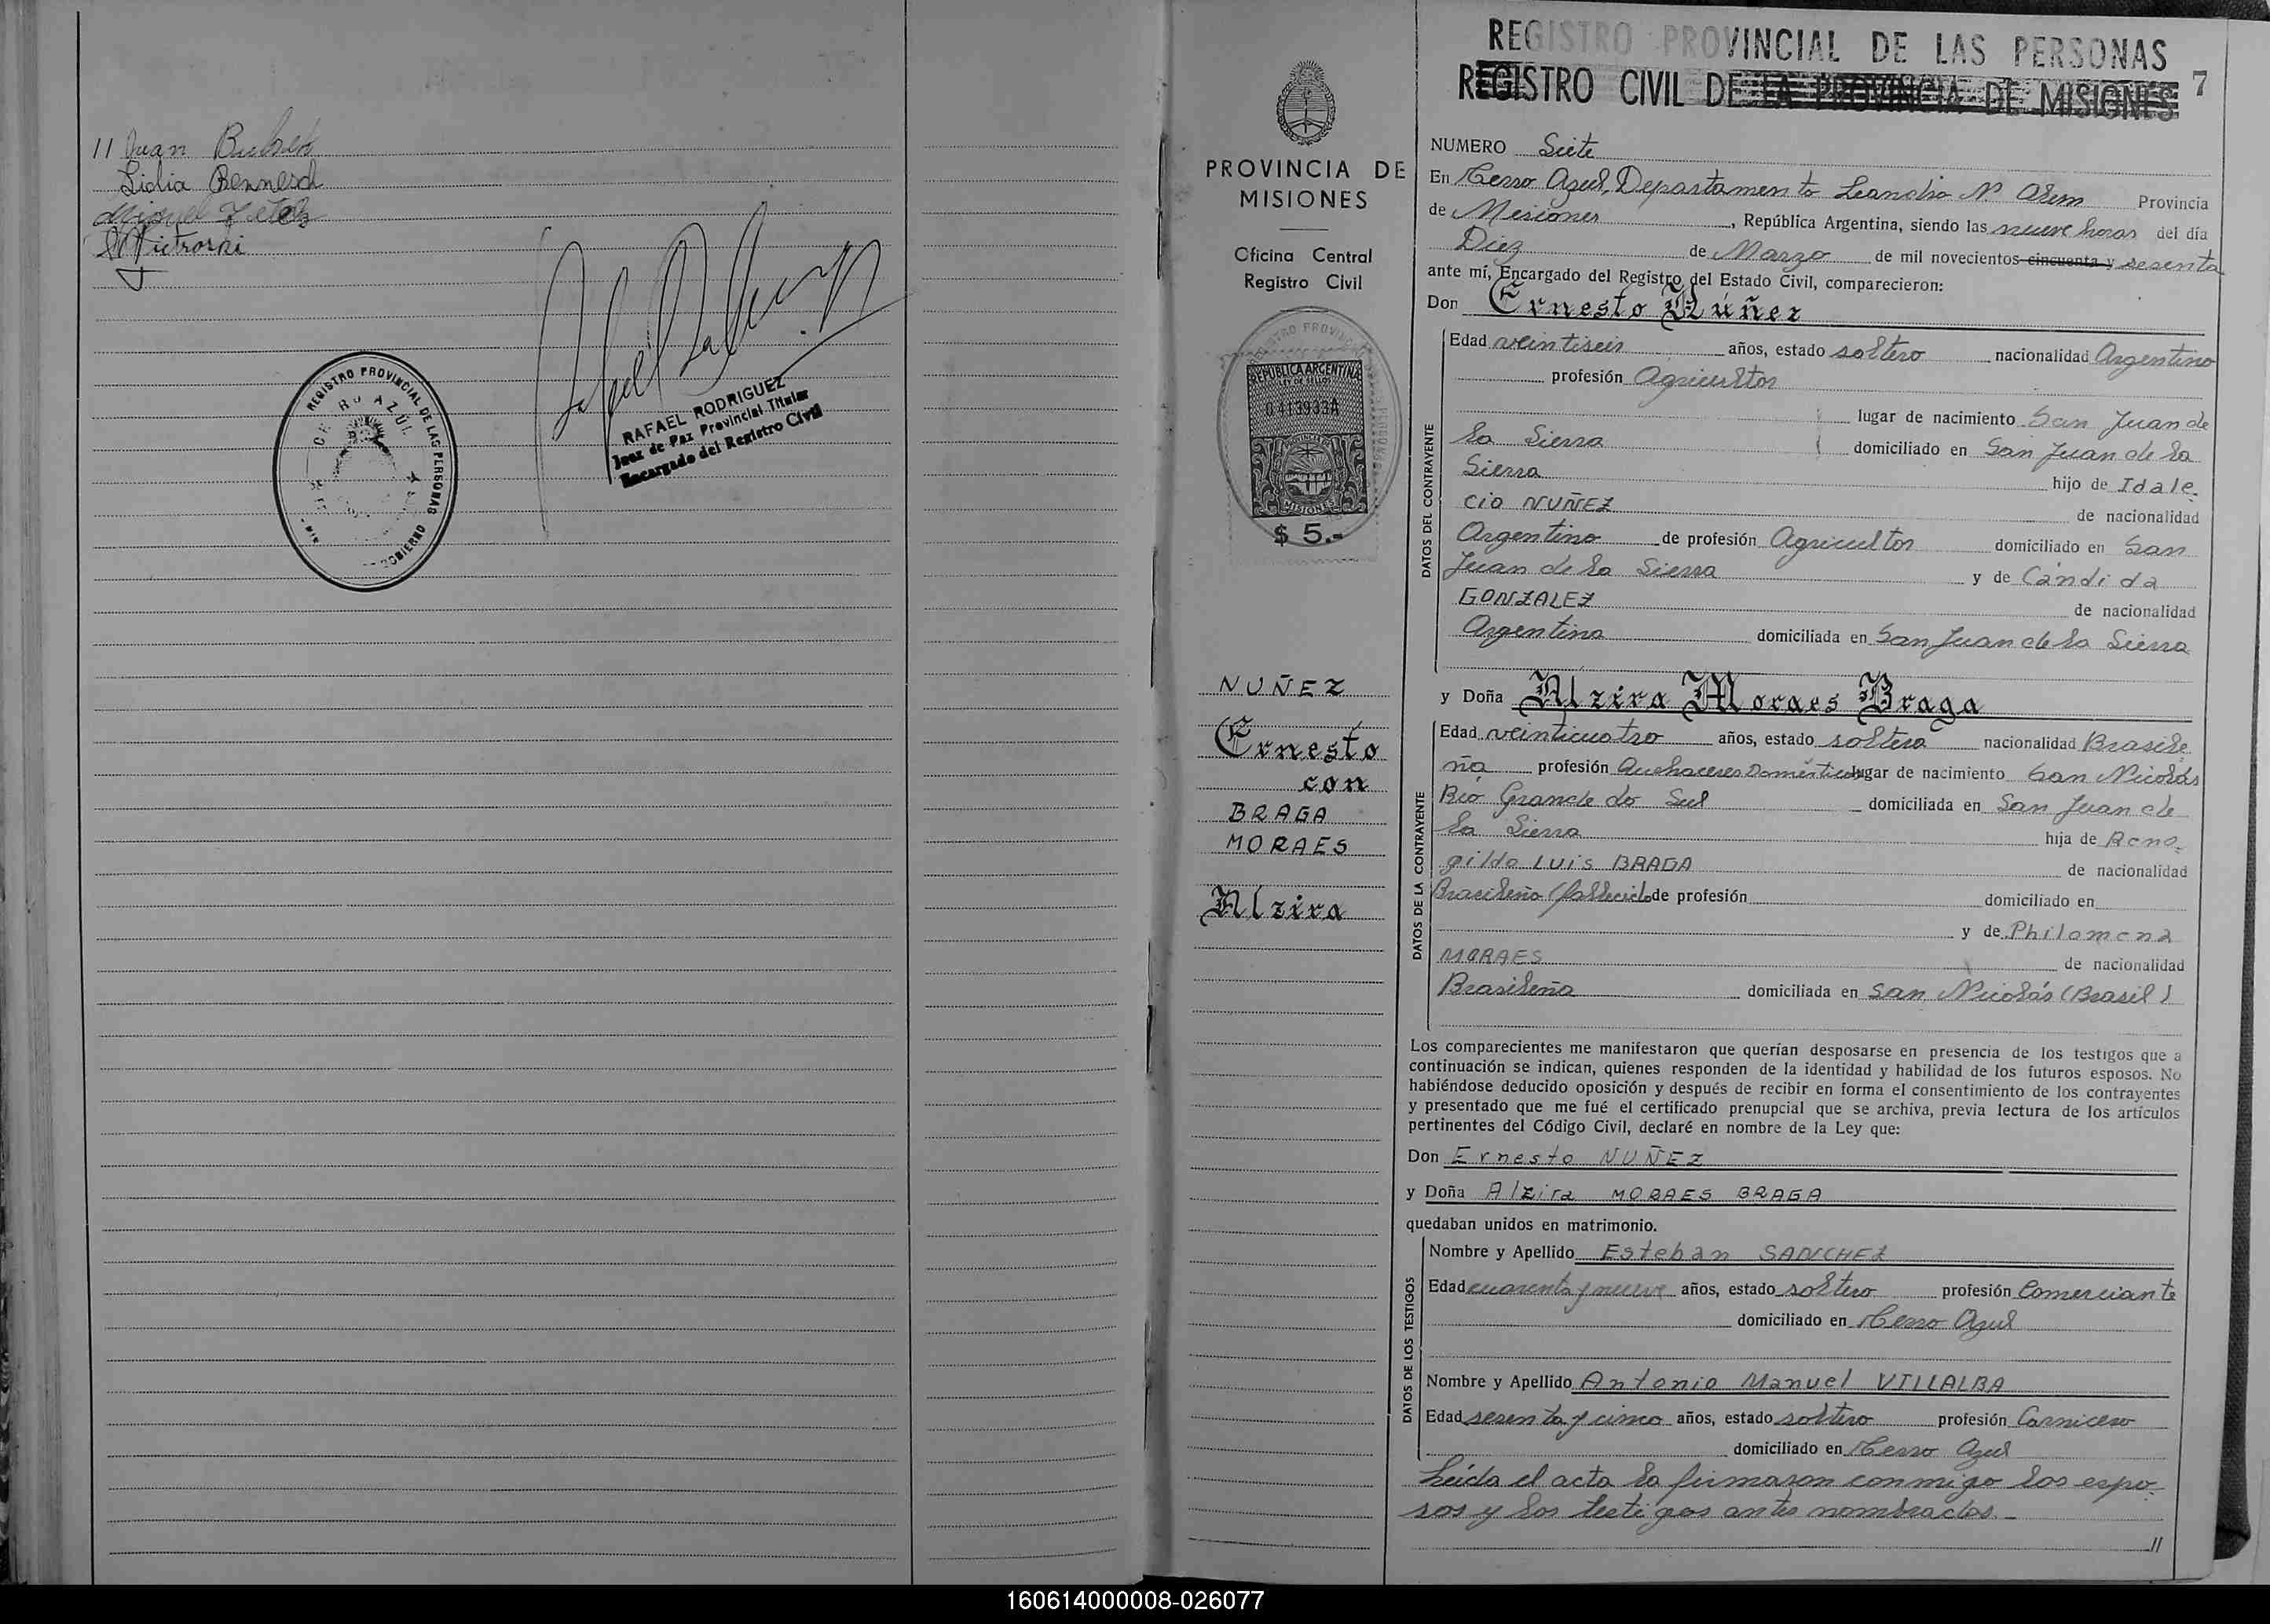 // Juan
Lidia Bennesch
Miguel
Pietroski
REGISTRO PROVINCIAL DE LAS PERSONAS
CERRO AZUL
GOBIERNO
RAFAEL RODRIGUEZ
Juez de Paz Provincial Titular
Encargado del Registro Civil
PROVINCIA DE
MISIONES
Oficina Central
Registro Civil
REPUBLICA ARGENTINA
LEY DE SELLOS
0413933A
MISIONES
$ 5.-
NUÑEZ
Ernesto
con
BRAGA
MORAES
Alzira
REGISTRO PROVINCIAL DE LAS PERSONAS
REGISTRO CIVIL DE LA PROVINCIA DE MISIONES 7
NUMERO Siete
En Cerro Azul, Departamento Leandro N. Alem Provincia
de Misiones, República Argentina, siendo las nueve horas del día
Diez de Marzo de mil novecientos cincuenta y sesenta
ante mí, Encargado del Registro del Estado Civil, comparecieron:
Don Ernesto Núñez
DATOS DEL CONTRAYENTE
Edad veintiseis años, estado soltero nacionalidad Argentino
profesión Agricultor
lugar de nacimiento San Juan de
la Sierra domiciliado en San Juan de la
Sierra hijo de Idale-
cio NUÑEZ de nacionalidad
Argentino de profesión Agricultor domiciliado en San
Juan de la Sierra y de Cándida
GONZALEZ de nacionalidad
Argentina domiciliada en San Juan de la Sierra
y Doña Alzira Moraes Braga
DATOS DE LA CONTRAYENTE
Edad veinticuatro años, estado soltera nacionalidad Brasile
ña profesión Quehaceres Domésticos lugar de nacimiento San Nicolás
Rio Grande do Sul domiciliada en San Juan de
la Sierra hija de Reno-
gildo Luis BRAGA de nacionalidad
Brasileño (fallecido de profesión domiciliado en
y de Philomena
MORAES de nacionalidad
Brasileña domiciliada en San Nicolás (Brasil)
Los comparecientes me manifestaron que querían desposarse en presencia de los testigos que a
continuación se indican, quienes responden de la identidad y habilidad de los futuros esposos. No
habiéndose deducido oposición y después de recibir en forma el consentimiento de los contrayentes
y presentado que me fué el certificado prenupcial que se archiva, previa lectura de los artículos
pertinentes del Código Civil, declaré en nombre de la Ley que:
Don Ernesto NUÑEZ
y Doña Alzira MORAES BRAGA
quedaban unidos en matrimonio.
DATOS DE LOS TESTIGOS
Nombre y Apellido Esteban SANCHEZ
Edad cuarenta y nueve años, estado soltero profesión Comerciante
domiciliado en Cerro Azul
Nombre y Apellido Antonio Manuel VILLALBA
Edad sesenta y cinco años, estado soltero profesión Carnicero
domiciliado en Cerro Azul
Leída el acta la firmaron conmigo los espo-
sos y los testigos antes nombrados.-
//
160614000008-026077